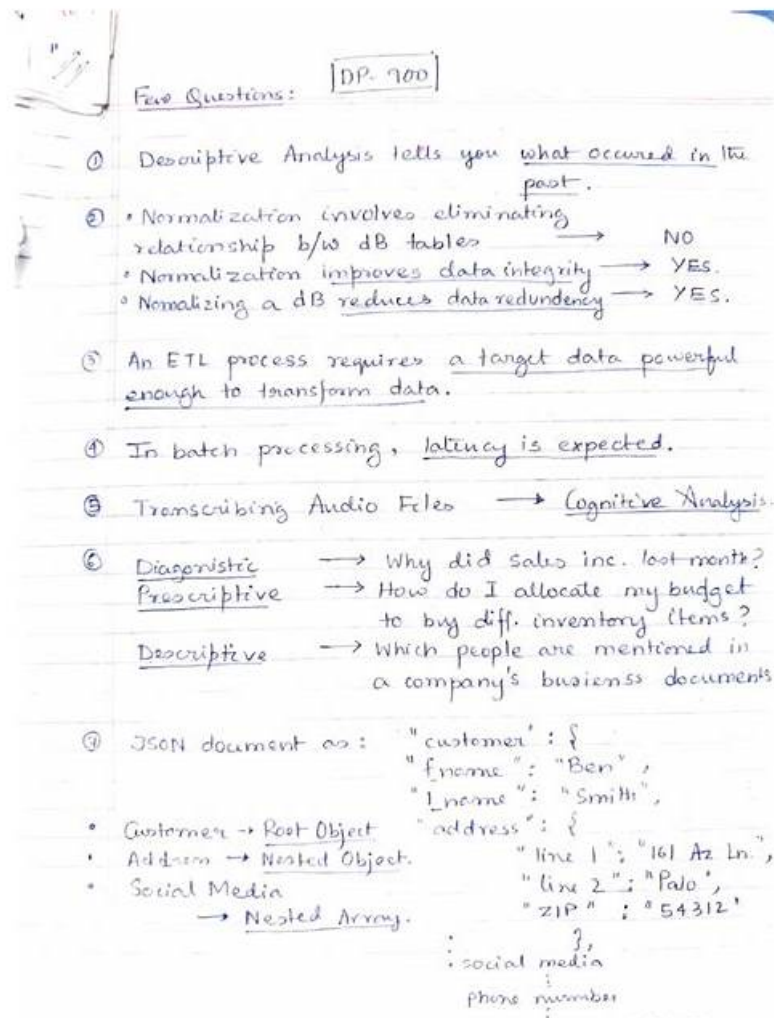 DP-900
Few Questions:
① Descriptive Analysis tells you what occured in the
past.
② • Normalization involves eliminating
relationship b/w dB tables → NO
• Normalization improves data integrity → YES.
• Nomalizing a dB reduces data redundency → YES.
③ An ETL process requires a target data powerful
enough to transform data.
④ In batch processing, latency is expected.
⑤ Transcribing Audio Files → Cognitive Analysis.
⑥ Diagonistic → Why did sales inc. last month?
Prescriptive → How do I allocate my budget
to buy diff. inventory items?
Descriptive → Which people are mentioned in
a company's busienss documents
⑦ JSON doument as: "customer": {
"fname": "Ben",
"Lname": "Smith",
• Customer → Root Object "address": {
• Address → Nested Object. "line 1": "161 Az Ln.",
• Social Media "line 2": "Palo",
→ Nested Array. "ZIP": "54312"
},
: social media
phone number